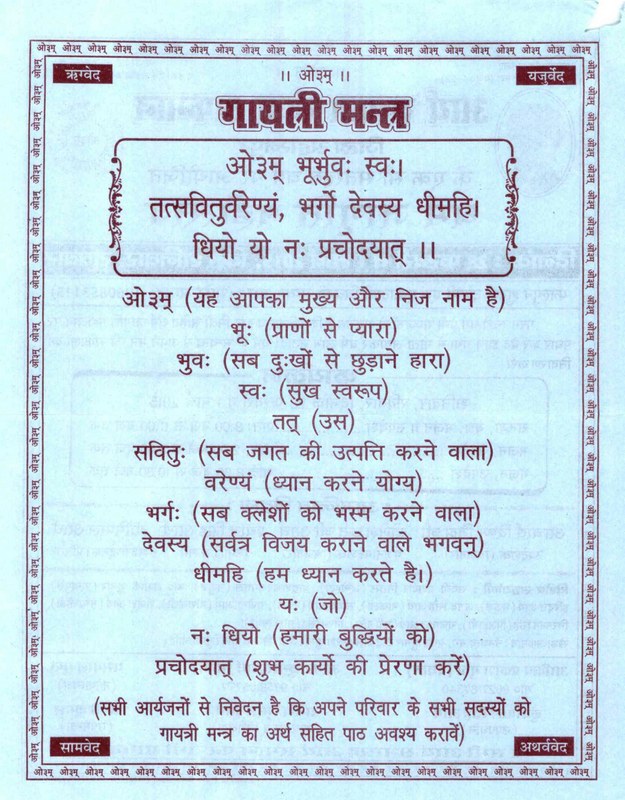 ओ३म् ओ३म् ओ३म् ओ३म् ओ३म् ओ३म् ओ३म् ओ३म् ओ३म् ओ३म् ओ३म् ओ३म् ओ३म् ओ३म् ओ३म् ओ३म् ओ३म्
ऋग्वेद
।। ओ३म् ।।
यजुर्वेद
गायत्री मन्त्र
ओ३म् भूर्भुवः स्वः।
तत्सवितुर्वरेण्यं, भर्गो देवस्य धीमहि।
धियो यो नः प्रचोदयात् ।।
ओ३म् (यह आपका मुख्य और निज नाम है)
भूः (प्राणों से प्यारा)
भुवः (सब दुःखों से छुड़ाने हारा)
स्वः (सुख स्वरूप)
तत् (उस)
सवितुः (सब जगत की उत्पत्ति करने वाला)
वरेण्यं (ध्यान करने योग्य)
भर्गः (सब क्लेशों को भस्म करने वाला)
देवस्य (सर्वत्र विजय कराने वाले भगवन्)
धीमहि (हम ध्यान करते है।)
यः (जो)
नः धियो (हमारी बुद्धियों को)
प्रचोदयात् (शुभ कार्यो की प्रेरणा करें)
(सभी आर्यजनों से निवेदन है कि अपने परिवार के सभी सदस्यों को
गायत्री मन्त्र का अर्थ सहित पाठ अवश्य करावें)
सामवेद
अथर्ववेद
ओ३म् ओ३म् ओ३म् ओ३म् ओ३म् ओ३म् ओ३म् ओ३म् ओ३म् ओ३म् ओ३म् ओ३म् ओ३म् ओ३म् ओ३म् ओ३म् ओ३म्